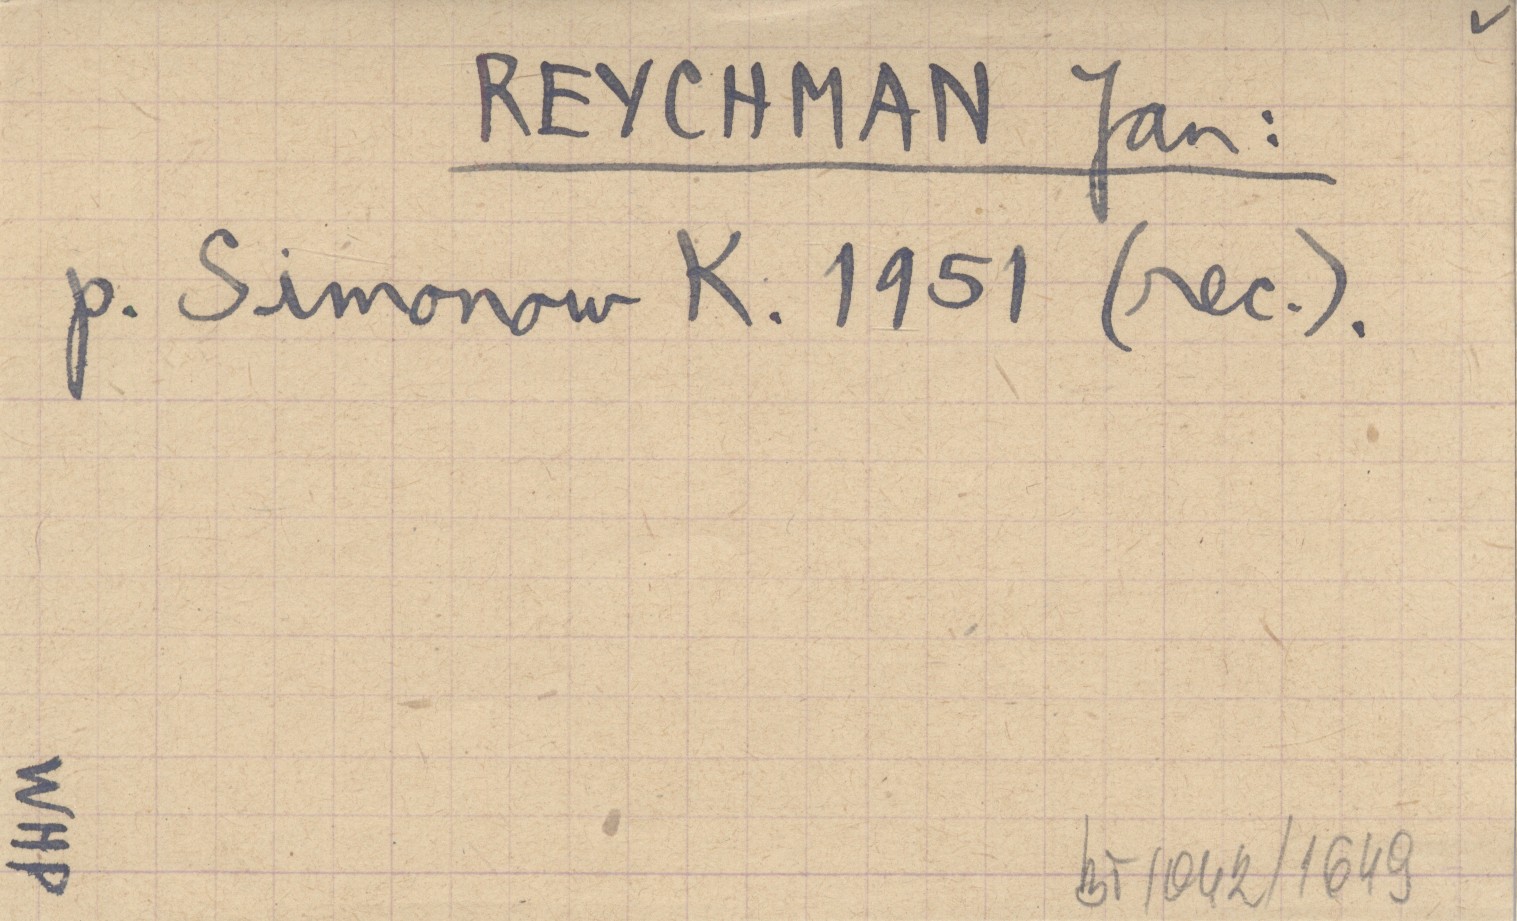 REYCHMAN Jan:
p. Simonow K. 1951 (rec.).
WHP
1042/1649